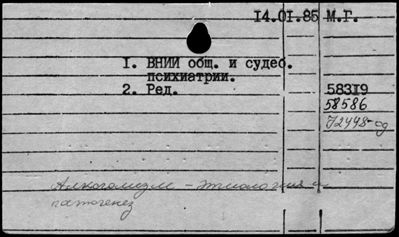 14.01.85 М.Г.
1. ВНИИ общ. и судеб.
психиатрии.
2. Ред. 58319
58586
72448-од
Алкоголизм - этиология и
патогенез